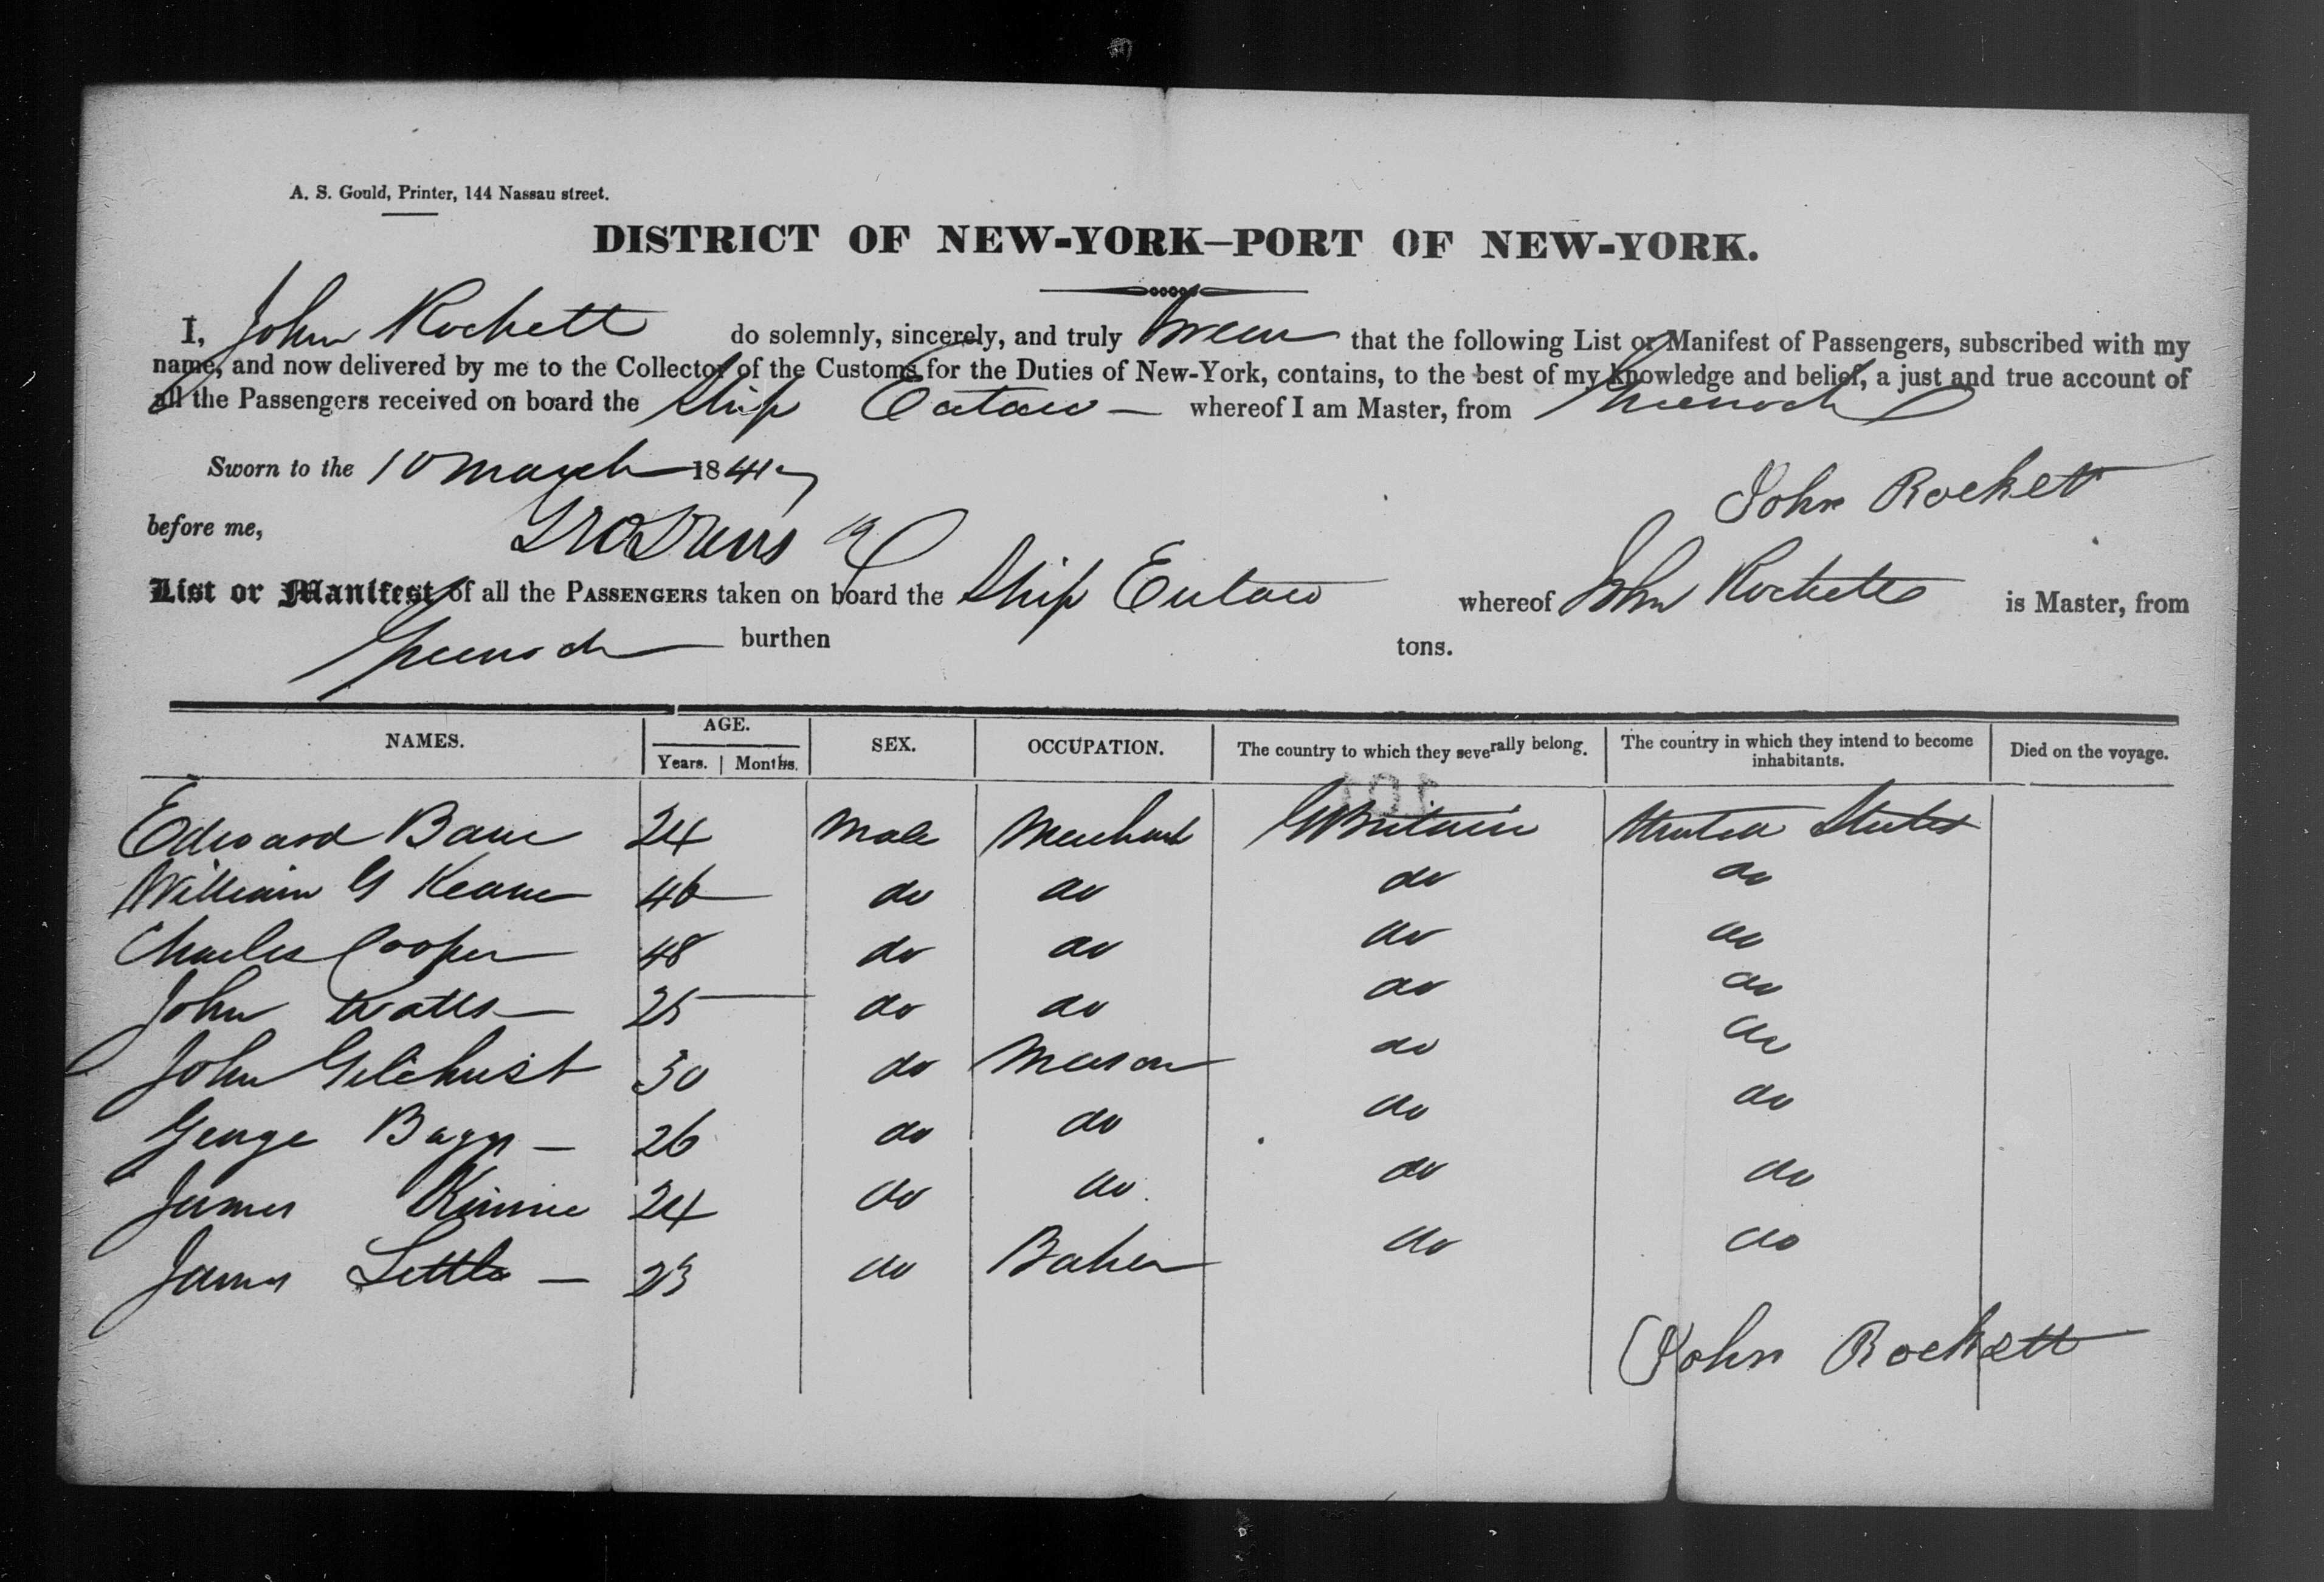 A. S. Gould, Printer, 144 Nassau street.
DISTRICT OF NEW-YORK—PORT OF NEW-YORK.
I, John Rockett do solemnly, sincerely, and truly swear that the following List or Manifest of Passengers, subscribed with my
name, and now delivered by me to the Collector of the Customs for the Duties of New-York, contains, to the best of my knowledge and belief, a just and true account of
all the Passengers received on board the Ship Eutaw — whereof I am Master, from Greenock
Sworn to the 10 March 1847
John Rockett
before me,
List or Manifest of all the PASSENGERS taken on board the Ship Eutaw whereof John Rockett is Master, from
Greenock burthen tons.
NAMES. AGE. Years. Months. SEX. OCCUPATION. The country to which they severally belong. The country in which they intend to become inhabitants. Died on the voyage.
101
Edward 24 Male Merchant G Britain United States
William G Keane 46 do do do do
Charles Cooper 48 do do do do
John Watts — 25 do do do do
John Gilchrist 30 do Mason do do
George — 26 do do do do
James Kinnie 24 do do do do
James Little — 23 do Baker do do
John Rockett